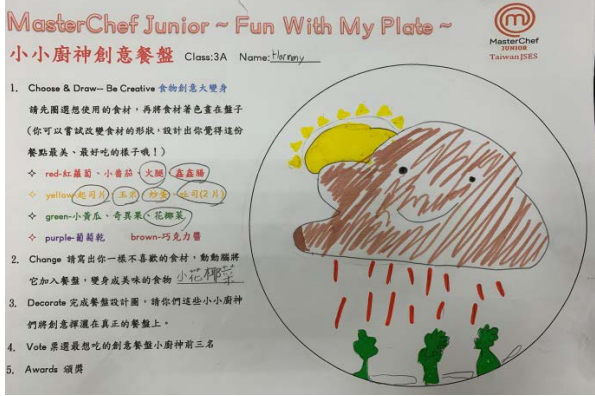 MasterChef Junior ~ Fun With My Plate ~
MasterChef
JUNIOR
Taiwan JSES
小小廚神創意餐盤 Class:3A Name: Harmony
1. Choose & Draw-- Be Creative 食物創意大變身
請先圈選想使用的食材，再將食材著色畫在盤子
(你可以嘗試改變食材的形狀，設計出你覺得這份
餐點最美、最好吃的樣子哦！)
✧ red-紅蘿蔔、小番茄、火腿、鑫鑫腸
✧ yellow-起司片、玉米、炒蛋、吐司(2片)
✧ green-小黃瓜、奇異果、花椰菜
✧ purple-葡萄乾 brown-巧克力醬
2. Change 請寫出你一樣不喜歡的食材，動動腦將
它加入餐盤，變身成美味的食物 小花椰菜
3. Decorate 完成餐盤設計圖，請你們這些小小廚神
們將創意揮灑在真正的餐盤上。
4. Vote 票選最想吃的創意餐盤小廚神前三名
5. Awards 頒獎